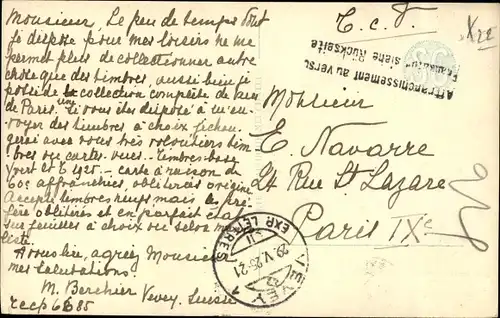 Monsieur, Le peu de temps dont
je dispose pour mes loisirs ne me
permet plus de collectionner autre
chose que des timbres, aussi bien je
possède collection complète de vues
de Paris. Si vous êtes disposé à m'en-
voyer des timbres à choix j'échan-
gerai avec vous très volontiers tim-
bres ou cartes-vues - timbres base
Yvert et T 1925 - carte à raison de
60c affranchies, oblitérées origine
Accepte timbres neufs mais les pré-
fère oblitérés et en parfait état
sur feuilles à choix ou selon man-
liste.
A vous lire, agréez Monsieur
mes salutations.
M. Berchier Vevey. Suisse
T.c.T.
Affranchissement au verso
Frankatur siehe Rückseite
Monsieur
E. Navarre
24 Rue St Lazare
Paris IXe
VEVEY 1
29.V.25-21
EXP. LETTRES